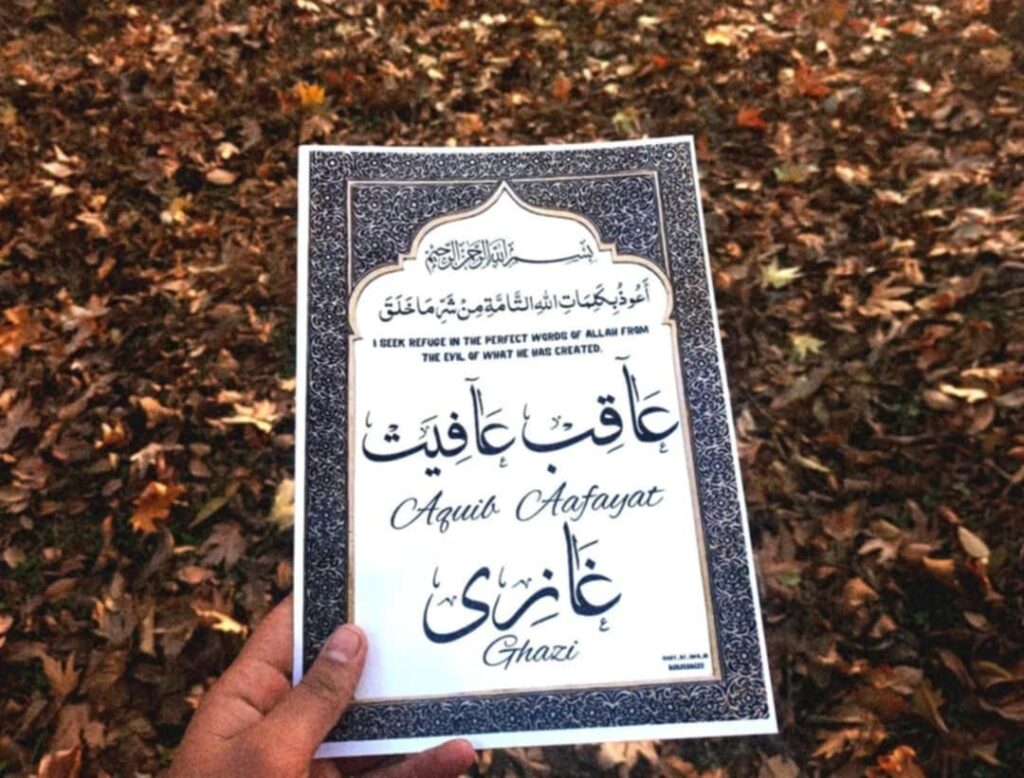 بِسْمِ اللهِ الرَّحْمٰنِ الرَّحِيْمِ
أَعُوذُ بِكَلِمَاتِ اللهِ التَّامَّةِ مِنْ شَرِّ مَا خَلَقَ
I SEEK REFUGE IN THE PERFECT WORDS OF ALLAH FROM
THE EVIL OF WHAT HE HAS CREATED.
عَاقِب عَافِيَت
Aquib Aafayat
غَازِى
Ghazi